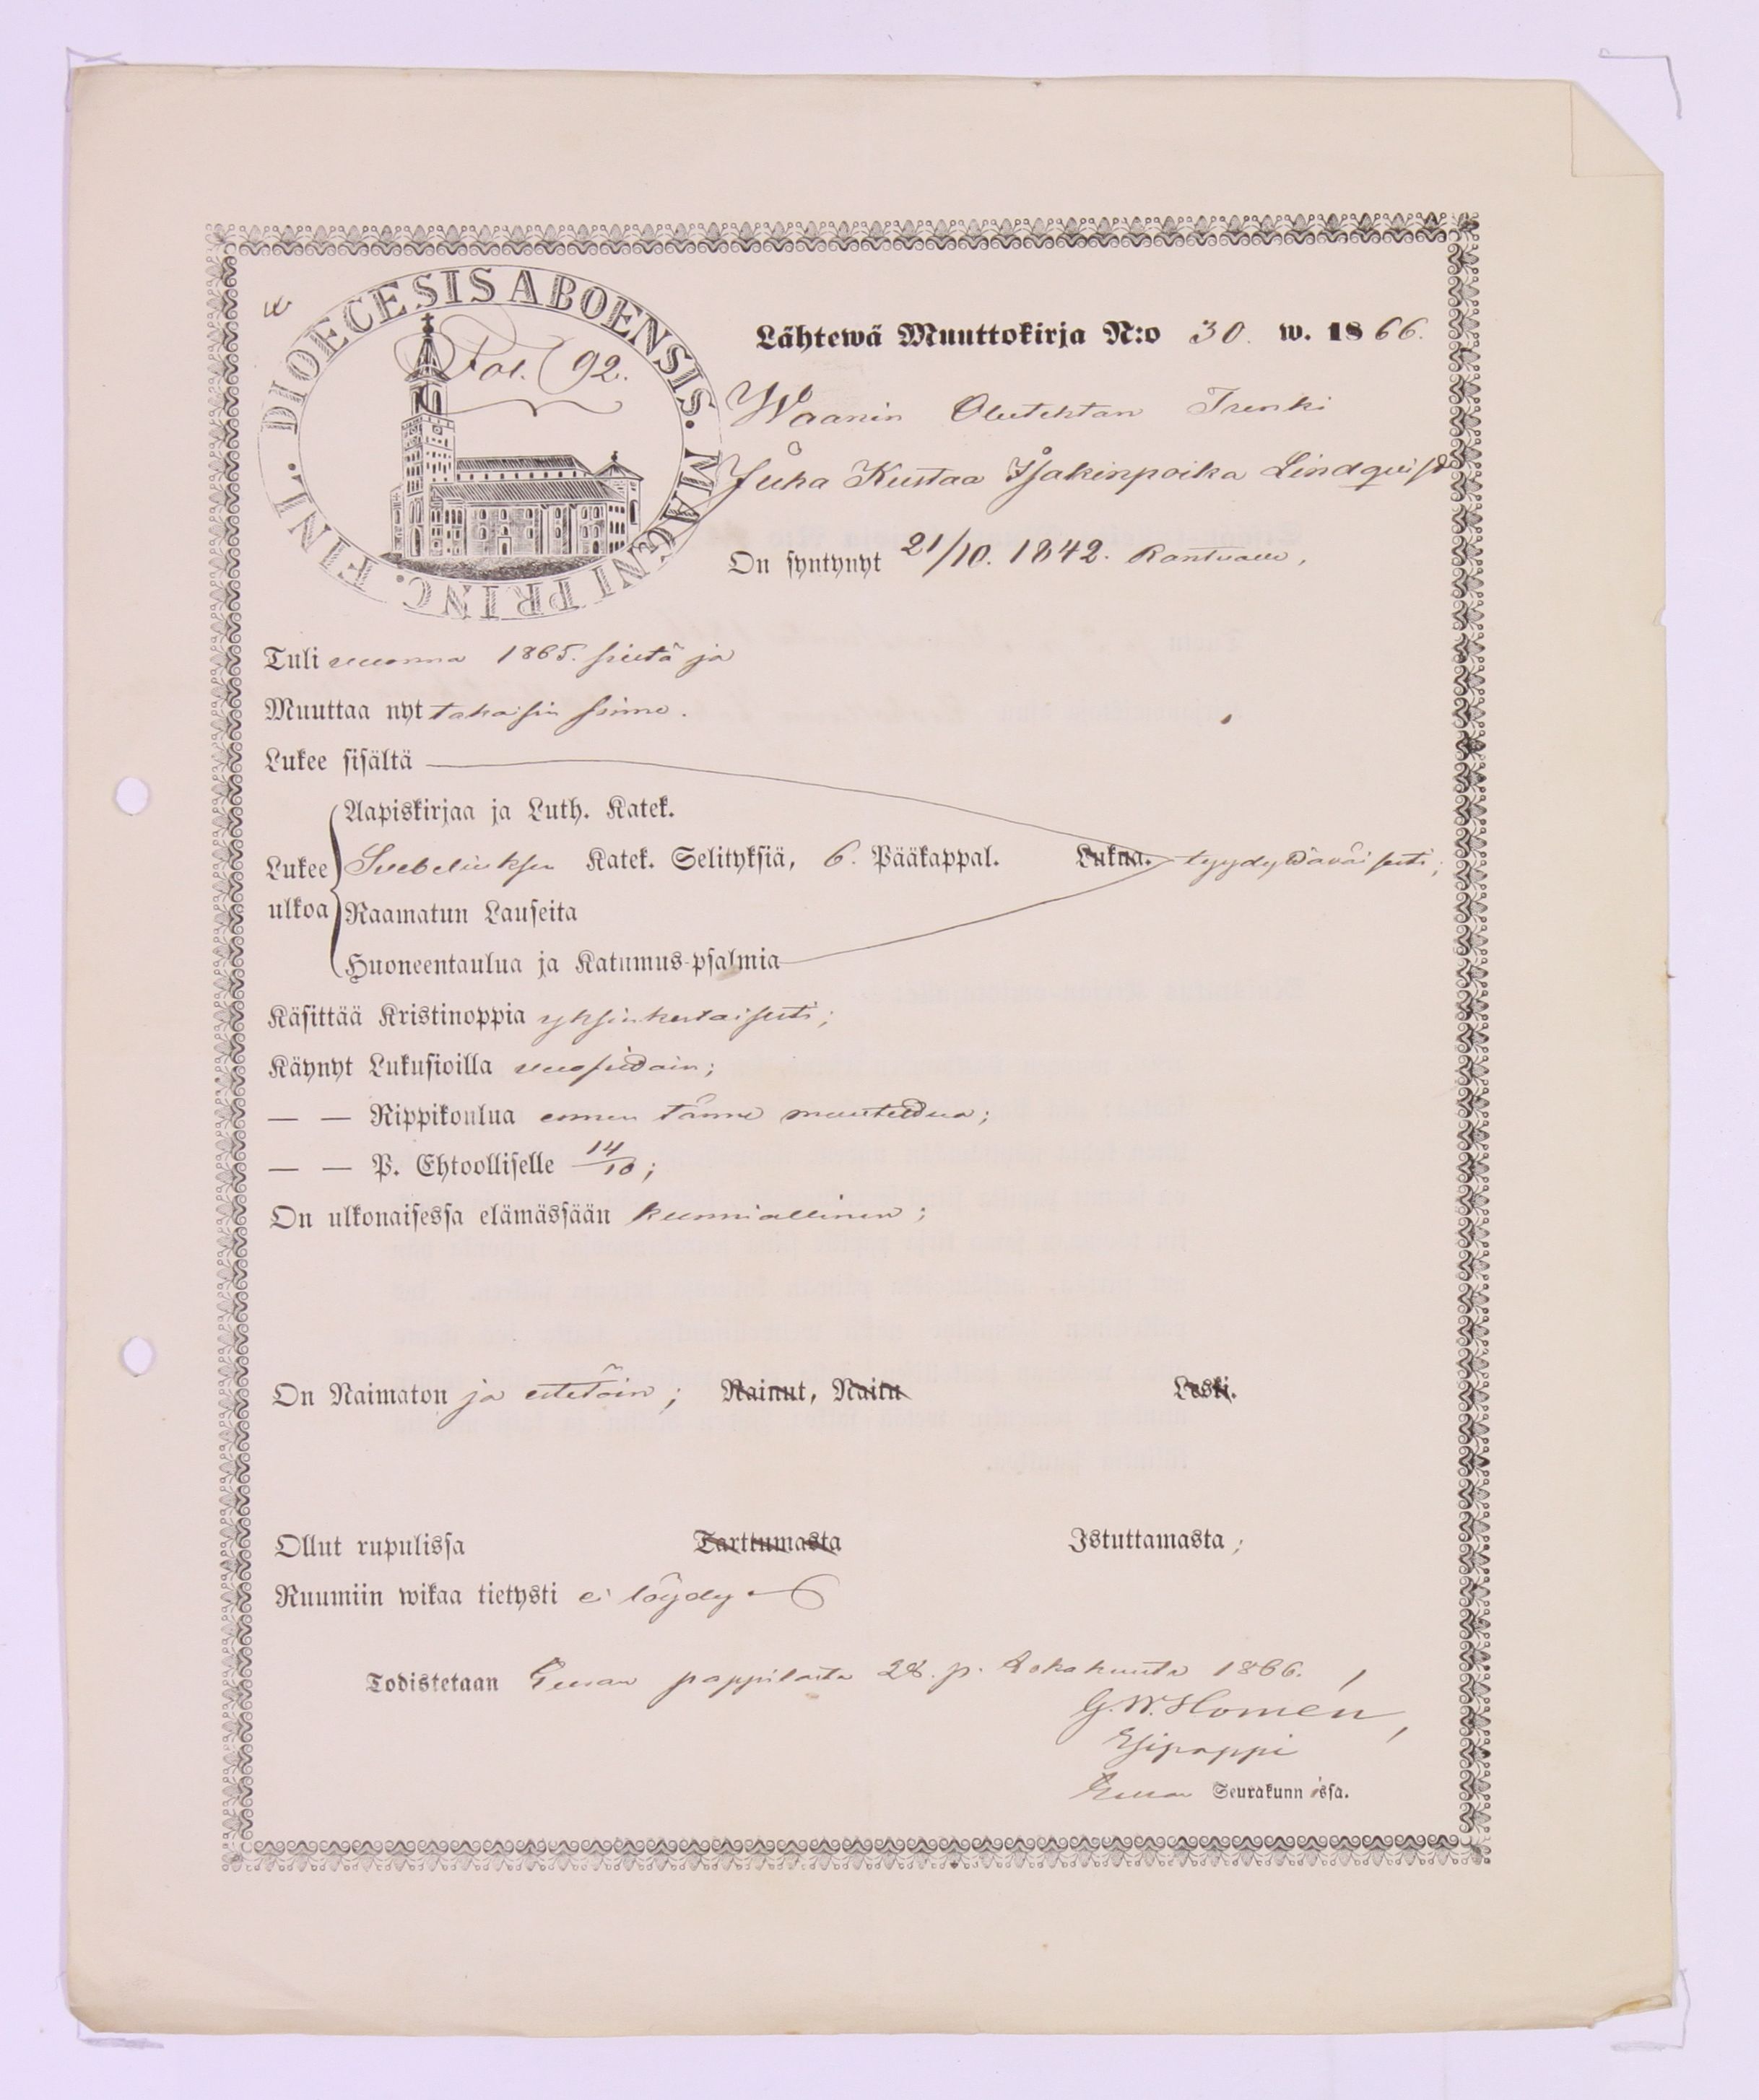 DIOECESIS ABOENSIS. MAGNI PRINC. FINL.
Fol. 92.
Lähtewä Muuttokirja N:o 30. w. 1866.
Waanin Olutehtan Trenki
Juha Kustaa Isakinpoika Lindqvist
On syntynyt 21/10. 1842. Kantvalla,
Tuli vuonna 1865. sieltä ja
Muuttaa nyt takaisin sinne.
Lukee sisältä
Aapiskirjaa ja Luth. Katek.
Lukee ulkoa Svebeliuksen Katek. Selityksiä, 6. Pääkappal. Lukua. tyydyttäväisesti;
Raamatun Lauseita
Huoneentaulua ja Katumus-psalmia
Käsittää Kristinoppia yksinkertaisesti;
Käynyt Lukusioilla vuosittain;
— — Rippikoulua ennen tänne muuttettua;
— — P. Ehtoolliselle 14/10;
On ulkonaisessa elämässään kunniallinen;
On Naimaton ja esteetöin; Nainut, Naitu Leski.
Ollut rupulissa Tarttumasta Istuttamasta;
Ruumiin wikaa tietysti ei löydy
Todistetaan Euran pappilasta 28. p. Lokakuuta 1866.
G. W. Homén,
Esipappi
Euran Seurakunnissa.